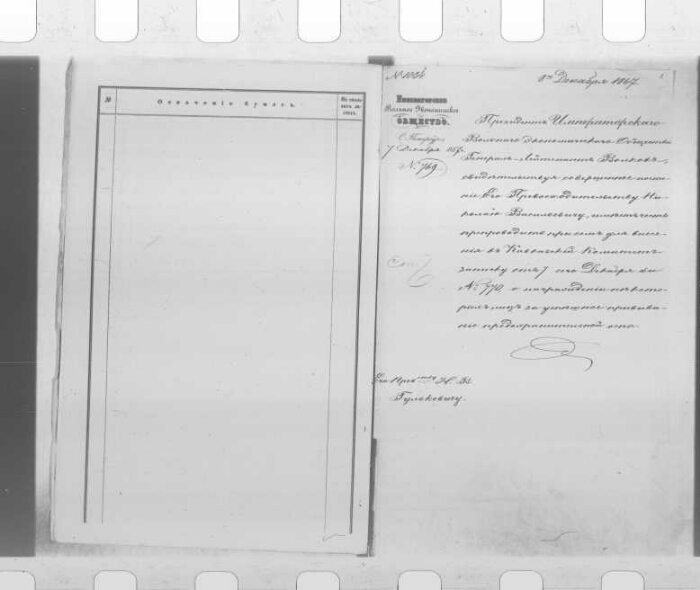 №
Означеніе бумагъ.
№ 1024
8го Декабря 1867.
Императорское
Вольное Экономическое
ОБЩЕСТВО.
С. Петербургъ
7 Декабря 1867 г.
№ 769
Президентъ Императорскаго
Вольнаго Экономическаго Общества
Генералъ-Лейтенантъ Волковъ,
свидѣтельствуя совершенное почте-
ніе Его Превосходительству Ни-
колаю Васильевичу, имѣетъ честь
препроводить при семъ для внесе-
нія въ Кавказскій Комитетъ
записку отъ 7 сего Декабря за
№ 770, о награжденіи нѣкото-
рыхъ лицъ за успѣшное прививa-
ніе предохранительной оспы.
Его Прев-ству Н. В.
Гулаковичу.